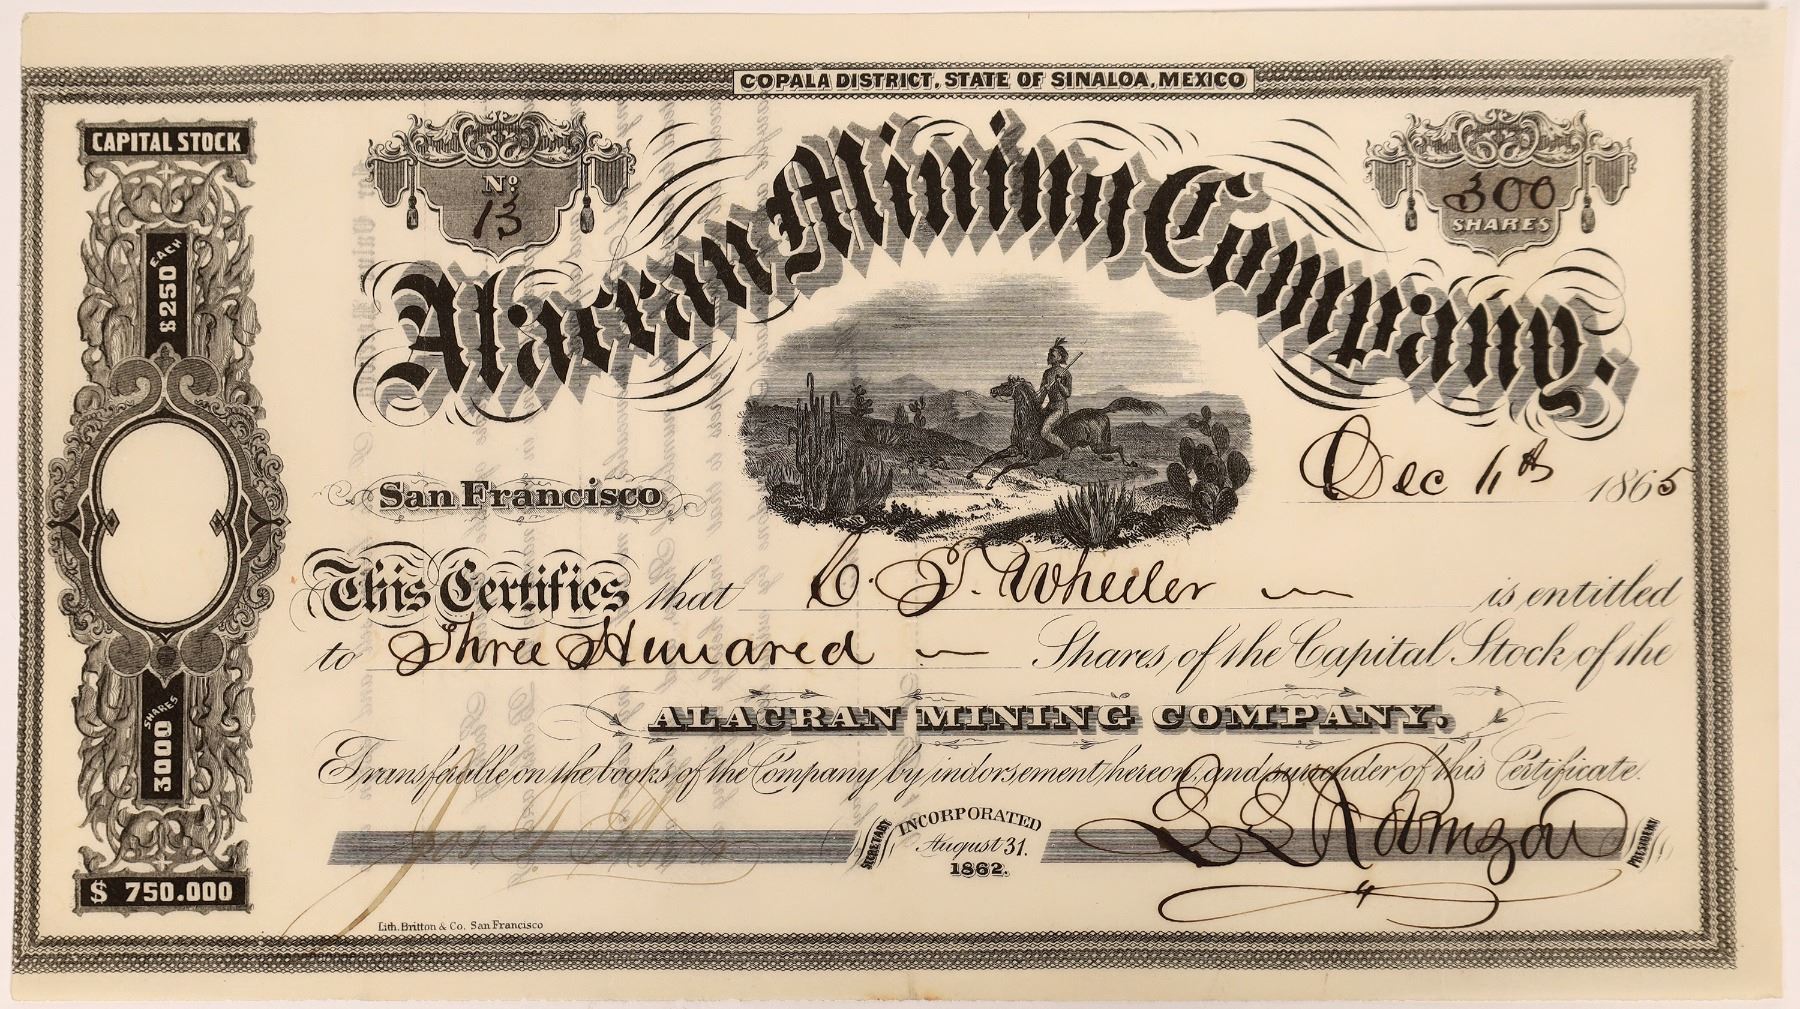 COPALA DISTRICT, STATE OF SINALOA, MEXICO
CAPITAL STOCK
$250 EACH
3000 SHARES
$ 750.000
No.
13
300
SHARES
Alacran Mining Company.
San Francisco
Dec 11th 1865
This Certifies that C. T. Wheeler is entitled
to Three Hundred Shares of the Capital Stock of the
ALACRAN MINING COMPANY.
Transferable on the books of the Company by indorsement hereon, and surrender of this Certificate.
SECRETARY
INCORPORATED
August 31.
1862.
PRESIDENT
Lith. Britton & Co. San Francisco